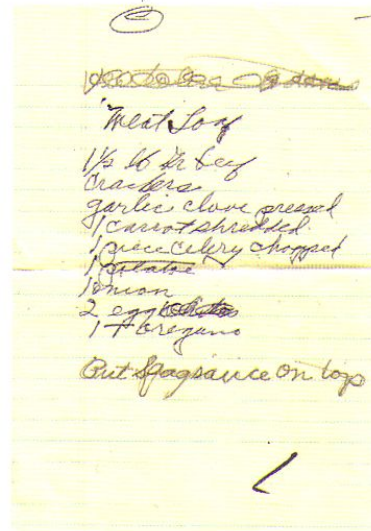 Meat Loaf
1½ lb Gr beef
Crackers
garlic clove pressed
1 carrot shredded
1 piece Celery chopped
1 potatoe
1 onion
2 egg
1 T oregano
Put Spagsauce on top